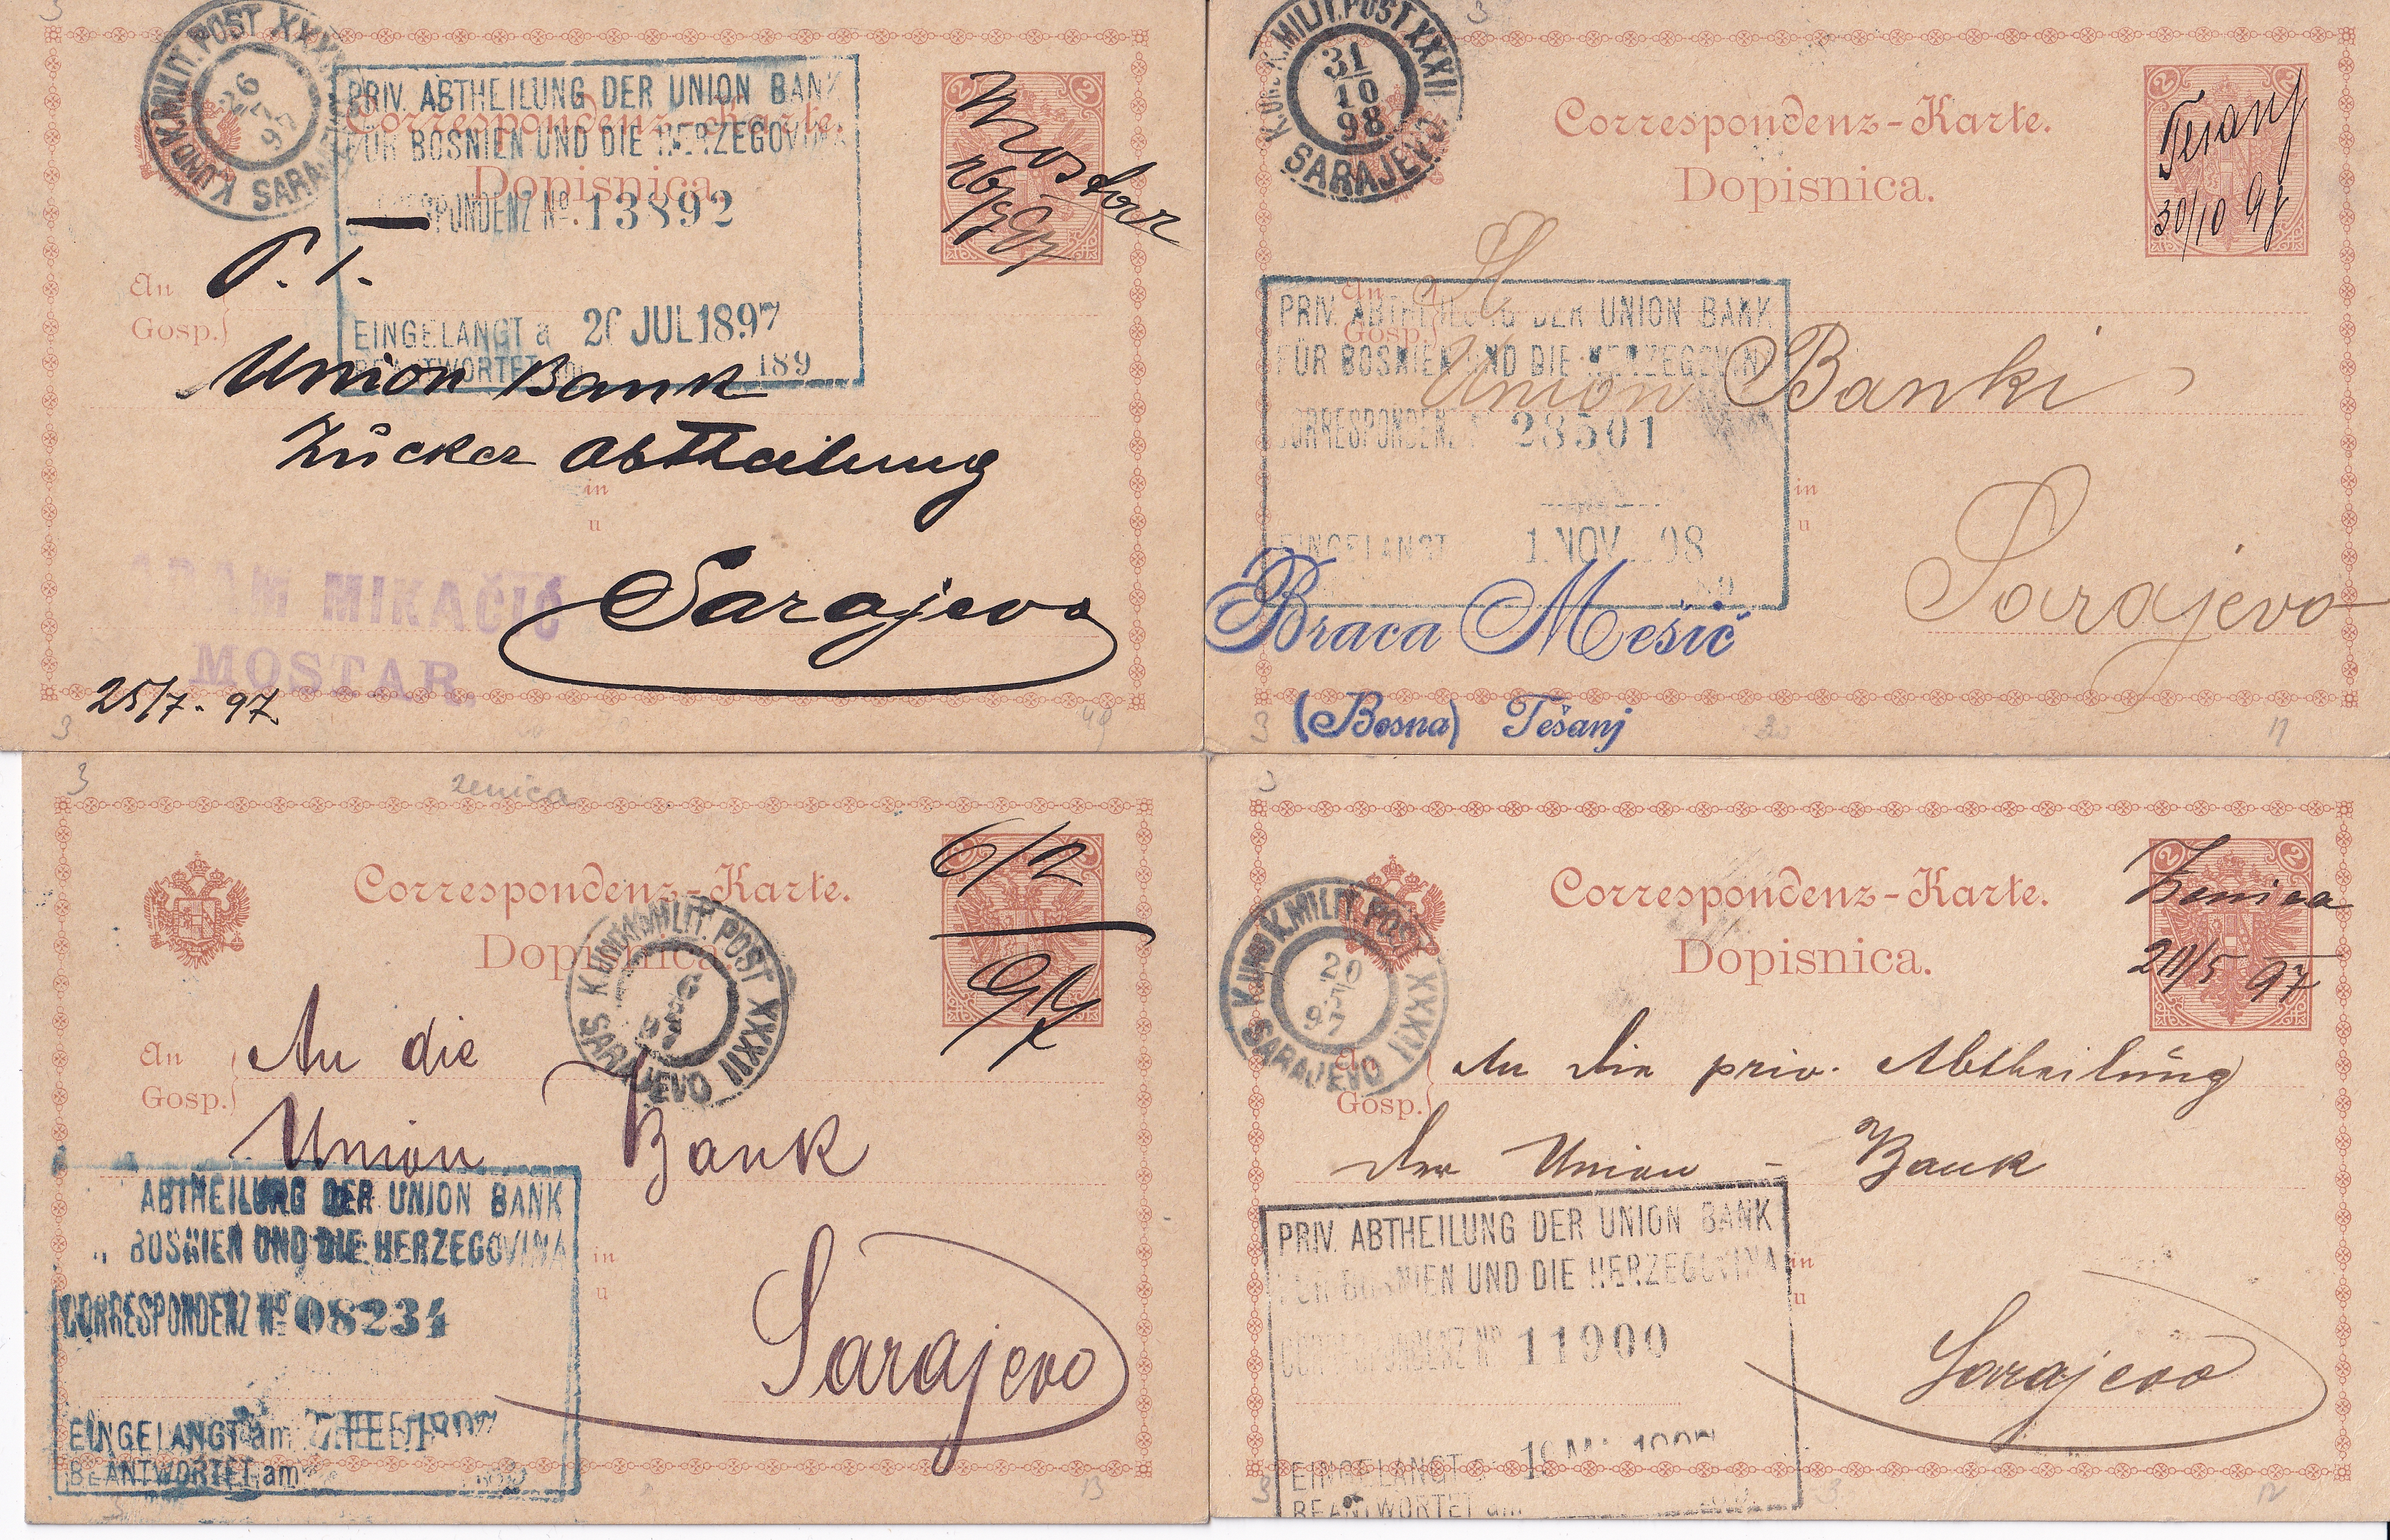 3
K. UND K. MILIT. POST XXXII
SARAJEVO
26
7
97
PRIV. ABTHEILUNG DER UNION BANK
FÜR BOSNIEN UND DIE HERZEGOVINA
Correspondenz-Karte.
Dopisnica.
CORRESPONDENZ No. 13892
2
2
Mostar
97
P. T.
An
Gosp.
EINGELANGT a 26 JUL 1897
BEANTWORTET 189
Union Bank
Zucker Abtheilung
in
u
Sarajevo
MIKAČIĆ
MOSTAR.
25/7. 97
3
49
3
K. UND K. MILIT. POST XXXII
SARAJEVO
31
10
98
Correspondenz-Karte.
Dopisnica.
2
2
Tešanj
30/10 98
An
Gosp.
PRIV. ABTHEILUNG DER UNION BANK
FÜR BOSNIEN UND DIE HERZEGOVINA
CORRESPONDENZ 28501
Union Banki
in
u
EINGELANGT 1. NOV. 98
Sarajevo
Braca Mešić
(Bosna) Tešanj
3
30
11
3
zenica
Correspondenz-Karte.
Dopisnica.
6/2
97
K. UND K. MILIT. POST XXXII
SARAJEVO
6
2
97
An
Gosp.
An die
Union Bank
ABTHEILUNG DER UNION BANK
BOSNIEN UND DIE HERZEGOVINA
CORRESPONDENZ No 08234
in
u
Sarajevo
EINGELANGT am 7. FEB. 1897
BEANTWORTET am
13
3
Correspondenz-Karte.
Dopisnica.
2
2
Zenica
20/5 97
K. UND K. MILIT. POST XXXII
SARAJEVO
20
5
97
An
Gosp.
An die priv. Abtheilung
der Union-Bank
PRIV. ABTHEILUNG DER UNION BANK
FÜR BOSNIEN UND DIE HERZEGOVINA
CORRESPONDENZ No 11900
in
u
Sarajevo
EINGELANGT
BEANTWORTET am
3
3
12